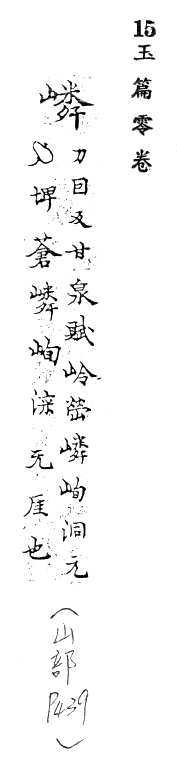 15玉篇零卷
嶙
力因反甘泉賦岭嵤嶙峋洞无
厓埤蒼嶙峋深无厓也
(山部P439)